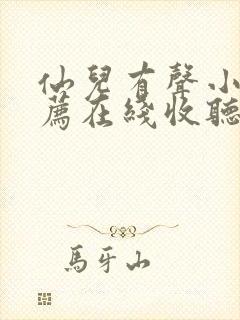 仙兒有聲小
薦在綫收聽
馬牙山